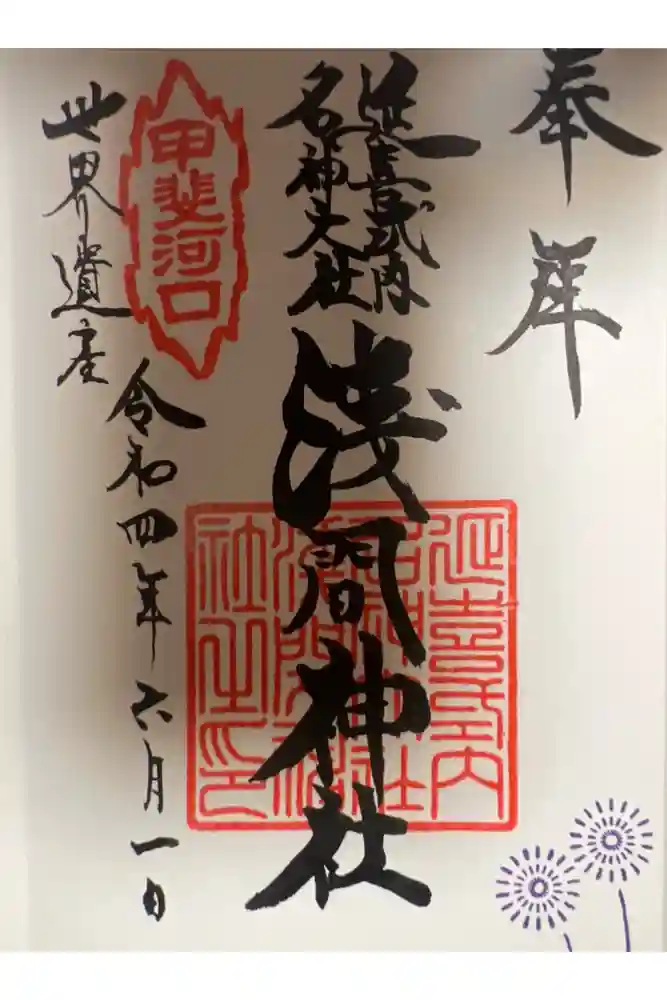 奉拝
延喜式内
名神大社
浅間神社
令和四年六月一日
甲斐河口
世界遺産
延喜式内
名神大社
浅間神
社之印